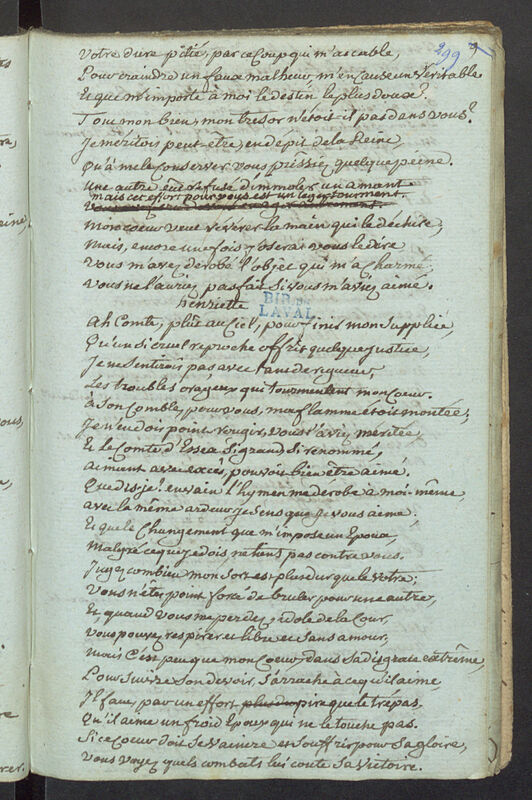 299
Votre dure pitié, par ce coup qui m'accable,
Pour craindre un faux malheur, m'en cause un véritable
Et que m'importe à moi le destin le plus doux?
Tout mon bien, mon tresor n'étoit il pas dans vous?
Je méritois peut-être, en dépit de la Reine,
Qu'à me le conserver vous prissiez quelque peine.
Une autre eut refusé d'immoler un amant
mais cet effort pour vous est un leger tourment.
mon coeur veut reverer la main qui le déchire;
Mais, encore une fois j'oserai vous le dire
Vous m'avez derobé l'objet qui m'a charmé;
Vous ne l'auriez pas fait si vous m'aviez aimé.
henriette
BIB DE
LAVAL
Ah Comte, plût au Ciel, pour finir mon supplice,
Qu'un si cruel reproche offrit quelque justice,
Je ne sentirois pas avec tant de rigueur,
Les troubles orageux qui tourmentent mon Coeur.
à son Comble, pour vous, ma flamme étoit montée;
Je n'en dois point rougir, vous l'aviez méritée,
Et le Comte d'Essex si grand si renommé,
aimant avec excès, pouvoit bien être aimé.
Que dis-je! en vain l'hymen me derobe à moi-même
avec la même ardeur je sens que je vous aime;
Et que le Changement que m'impose un Epoux,
Malgré ce que je dois, ne tient pas contre vous.
Jugez combien mon sort est plus dur que le votre;
Vous n'êtes point forcé de bruler pour une autre,
Et, quand vous me perdez, idole de la Cour,
Vous pouvez respirer et libre et sans amour,
Mais c'est peu que mon Coeur, dans sa disgrace extrême,
Pour suivre son devoir, s'arrache à ce qu'il aime
Il faut, par un effort plus dur pire que le trépas.
Qu'il aime un froid Epoux qui ne le touche pas.
Si ce Coeur doit se vaincre et souffrir pour sa gloire,
Vous voyez quels combats lui coute sa Victoire.